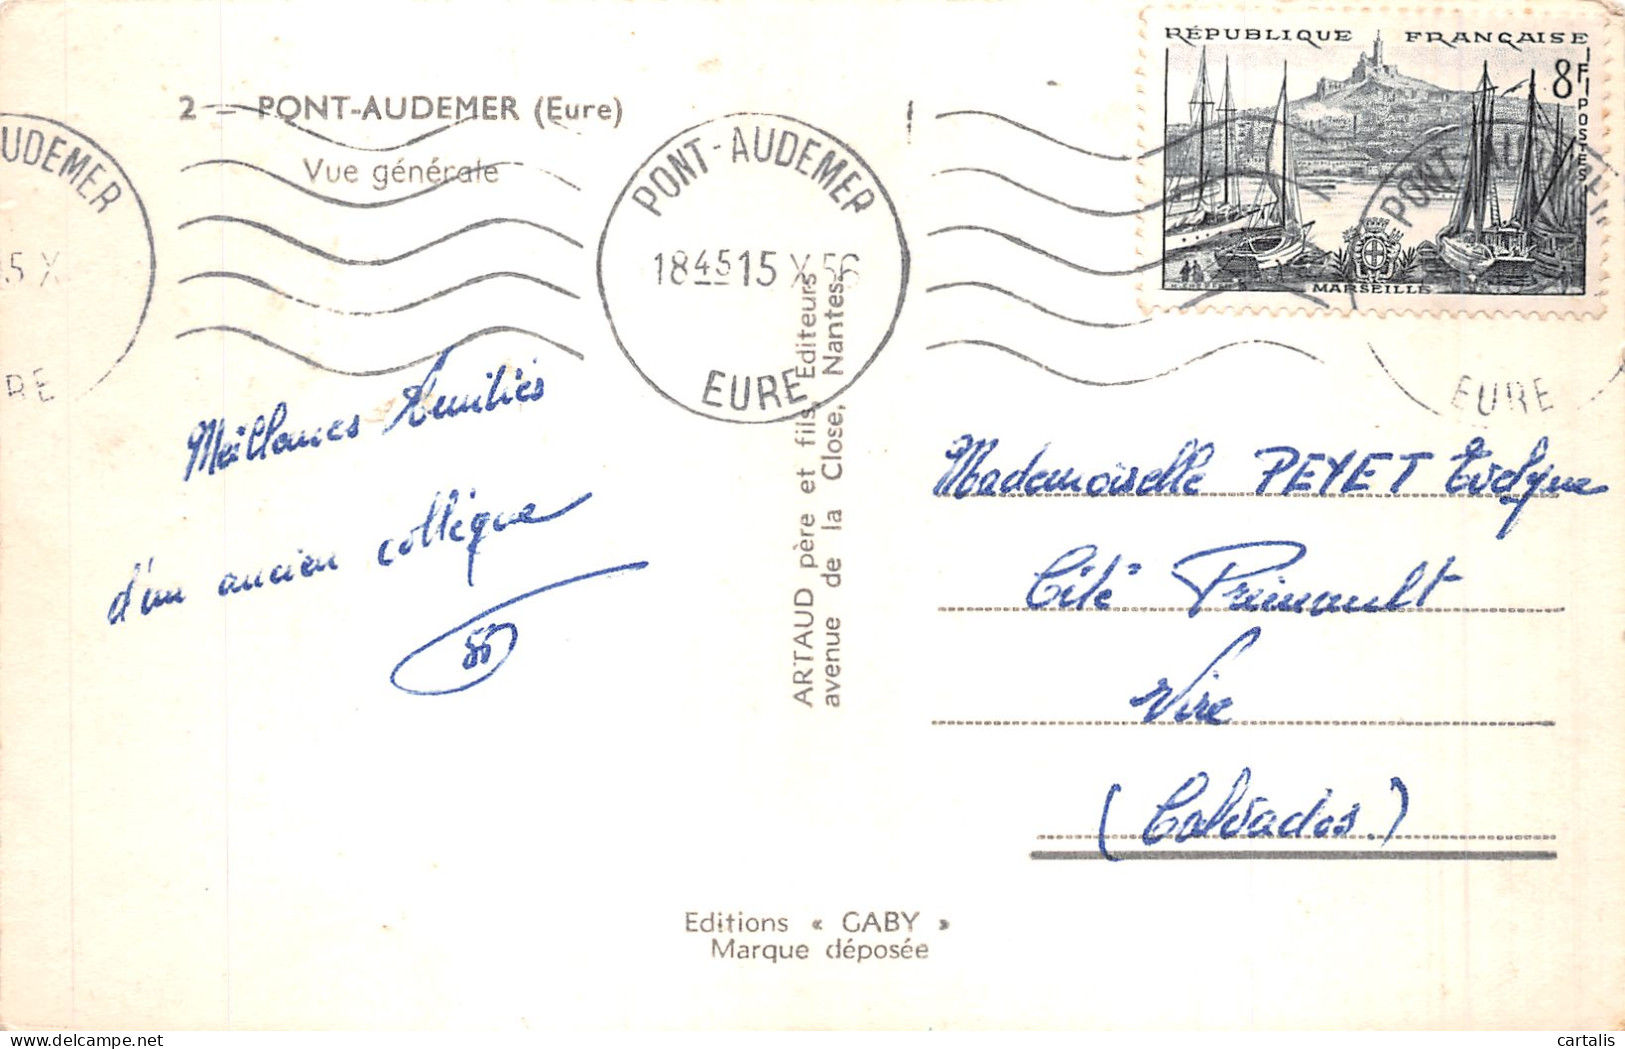 2 — PONT-AUDEMER (Eure)
Vue générale
UDEMER
5 X
RE
PONT-AUDEMER
18 45 15 X 56
EURE
RÉPUBLIQUE FRANÇAISE
8F
POSTES
MARSEILLE
PONT-AUDEMER
EURE
Meilleures Amitiés
d'un ancien collègue
ARTAUD père et fils, Editeurs
avenue de la Close, Nantes
Mademoiselle PEYET Evelyne
Cité Primault
Vire
(Calvados.)
Editions « GABY »
Marque déposée
cartalis